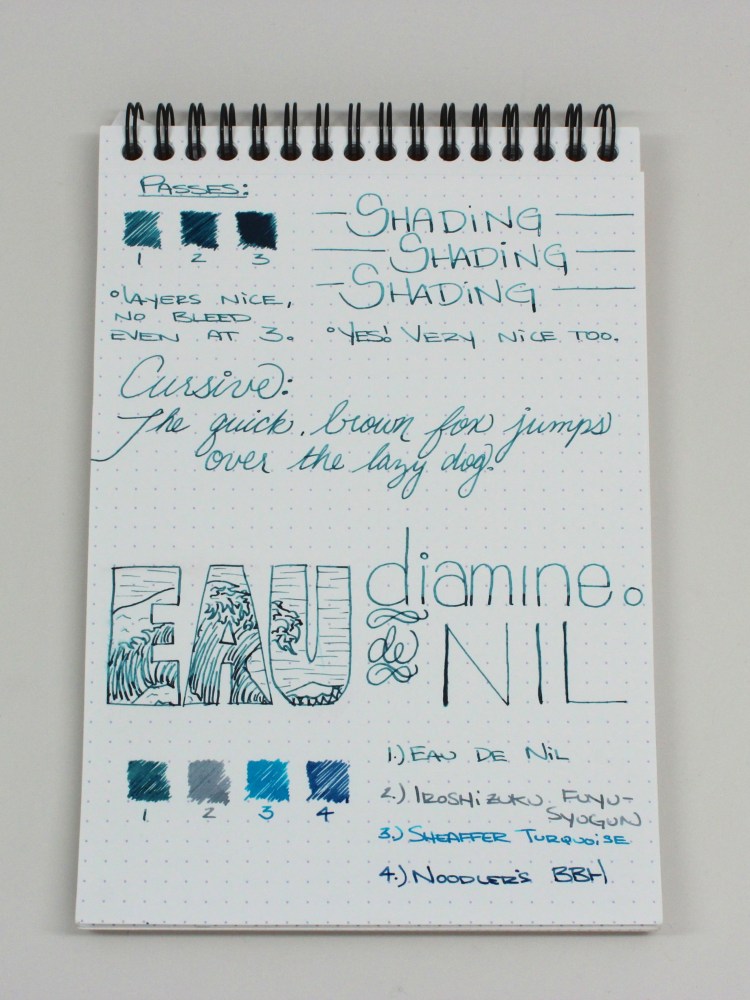 PASSES:
1 2 3
°LAYERS NICE,
NO BLEED
EVEN AT 3.
SHADING
SHADING
SHADING
°YES! VERY NICE TOO.
Cursive:
The quick, brown fox jumps
over the lazy dog.
EAU diamine.
de NIL
1 2 3 4
1.) EAU DE NIL
2.) IROSHIZUKU FUYU-
SYOGUN
3.) SHEAFFER TURQUOISE
4.) NOODLER'S BBH